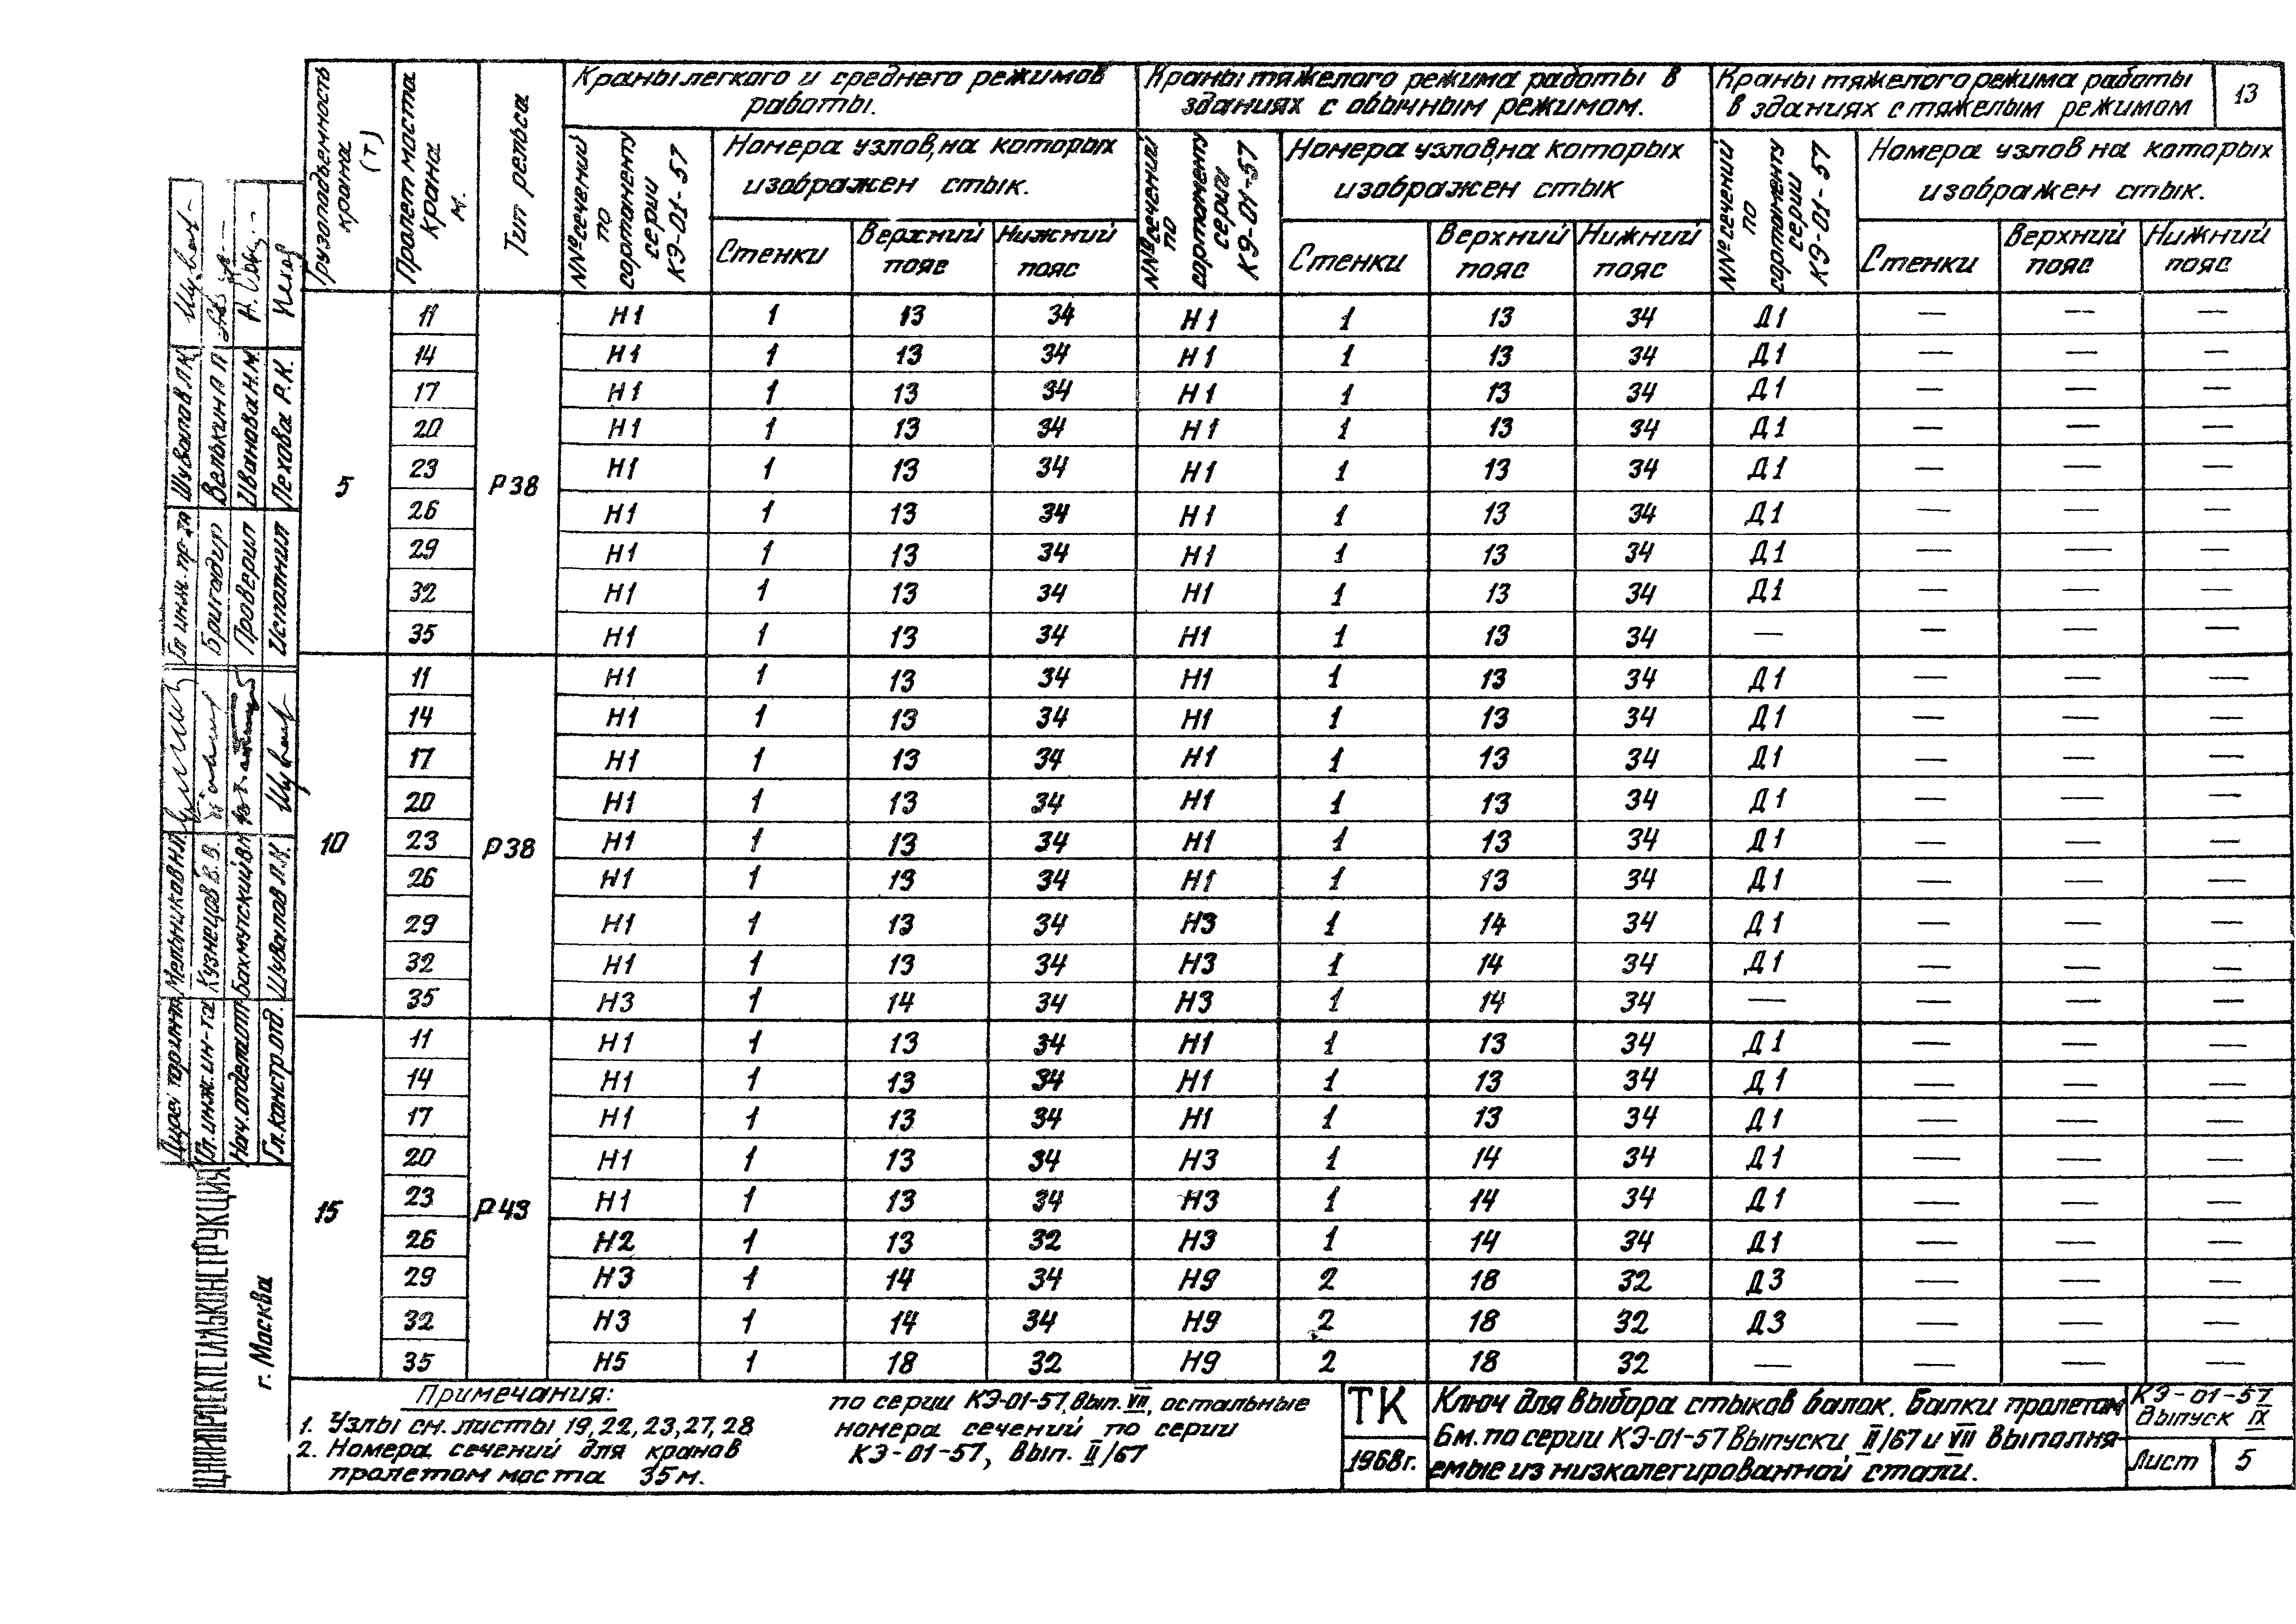 Краны легкого и среднего режимов работы.
Краны тяжелого режима работы в зданиях с обычным режимом.
Краны тяжелого режима работы в зданиях с тяжелым режимом
13
Грузоподъемность крана (т)
Пролет моста крана м.
Тип рельса
NN№ сечений по сортаменту серии КЭ-01-57
Номера узлов, на которых изображен стык.
NN№ сечений по сортаменту серии КЭ-01-57
Номера узлов, на которых изображен стык
NN№ сечений по сортаменту серии КЭ-01-57
Номера узлов на которых изображен стык.
Стенки Верхний пояс Нижний пояс Стенки Верхний пояс Нижний пояс Стенки Верхний пояс Нижний пояс
5 Р38
11 Н1 1 13 34 Н1 1 13 34 Д1 — — —
14 Н1 1 13 34 Н1 1 13 34 Д1 — — —
17 Н1 1 13 34 Н1 1 13 34 Д1 — — —
20 Н1 1 13 34 Н1 1 13 34 Д1 — — —
23 Н1 1 13 34 Н1 1 13 34 Д1 — — —
26 Н1 1 13 34 Н1 1 13 34 Д1 — — —
29 Н1 1 13 34 Н1 1 13 34 Д1 — — —
32 Н1 1 13 34 Н1 1 13 34 Д1 — — —
35 Н1 1 13 34 Н1 1 13 34 — — — —
10 Р38
11 Н1 1 13 34 Н1 1 13 34 Д1 — — —
14 Н1 1 13 34 Н1 1 13 34 Д1 — — —
17 Н1 1 13 34 Н1 1 13 34 Д1 — — —
20 Н1 1 13 34 Н1 1 13 34 Д1 — — —
23 Н1 1 13 34 Н1 1 13 34 Д1 — — —
26 Н1 1 13 34 Н1 1 13 34 Д1 — — —
29 Н1 1 13 34 Н3 1 14 34 Д1 — — —
32 Н1 1 13 34 Н3 1 14 34 Д1 — — —
35 Н3 1 14 34 Н3 1 14 34 — — — —
15 Р43
11 Н1 1 13 34 Н1 1 13 34 Д1 — — —
14 Н1 1 13 34 Н1 1 13 34 Д1 — — —
17 Н1 1 13 34 Н1 1 13 34 Д1 — — —
20 Н1 1 13 34 Н3 1 14 34 Д1 — — —
23 Н1 1 13 34 Н3 1 14 34 Д1 — — —
26 Н2 1 13 32 Н3 1 14 34 Д1 — — —
29 Н3 1 14 34 Н9 2 18 32 Д3 — — —
32 Н3 1 14 34 Н9 2 18 32 Д3 — — —
35 Н5 1 18 32 Н9 2 18 32 — — — —
Примечания:
1. Узлы см. листы 19,22,23,27,28
2. Номера сечений для кранов
пролетом моста 35м.
по серии КЭ-01-57, Вып. VII, остальные
номера сечений по серии
КЭ-01-57, вып. II/67
ТК
1968г.
Ключ для выбора стыков балок. Балки пролетом
6м. по серии КЭ-01-57 Выпуски II/67 и VII выполня-
емые из низколегированной стали.
КЭ-01-57
Выпуск IX
Лист 5
Гл инж. пр-та Шувалов Л.К.
Бригадир Велькин А П
Проверил Иванова Н.М.
Исполнил Пехова Р.К.
Мельников Н.П.
Гл. инж. ин-та Кузнецов В.В.
Нач. отдела Бахмутский
Гл. констр. отд. Шувалов Л.К.
ЦНИИПРОЕКТСТАЛЬКОНСТРУКЦИЯ
г. Москва